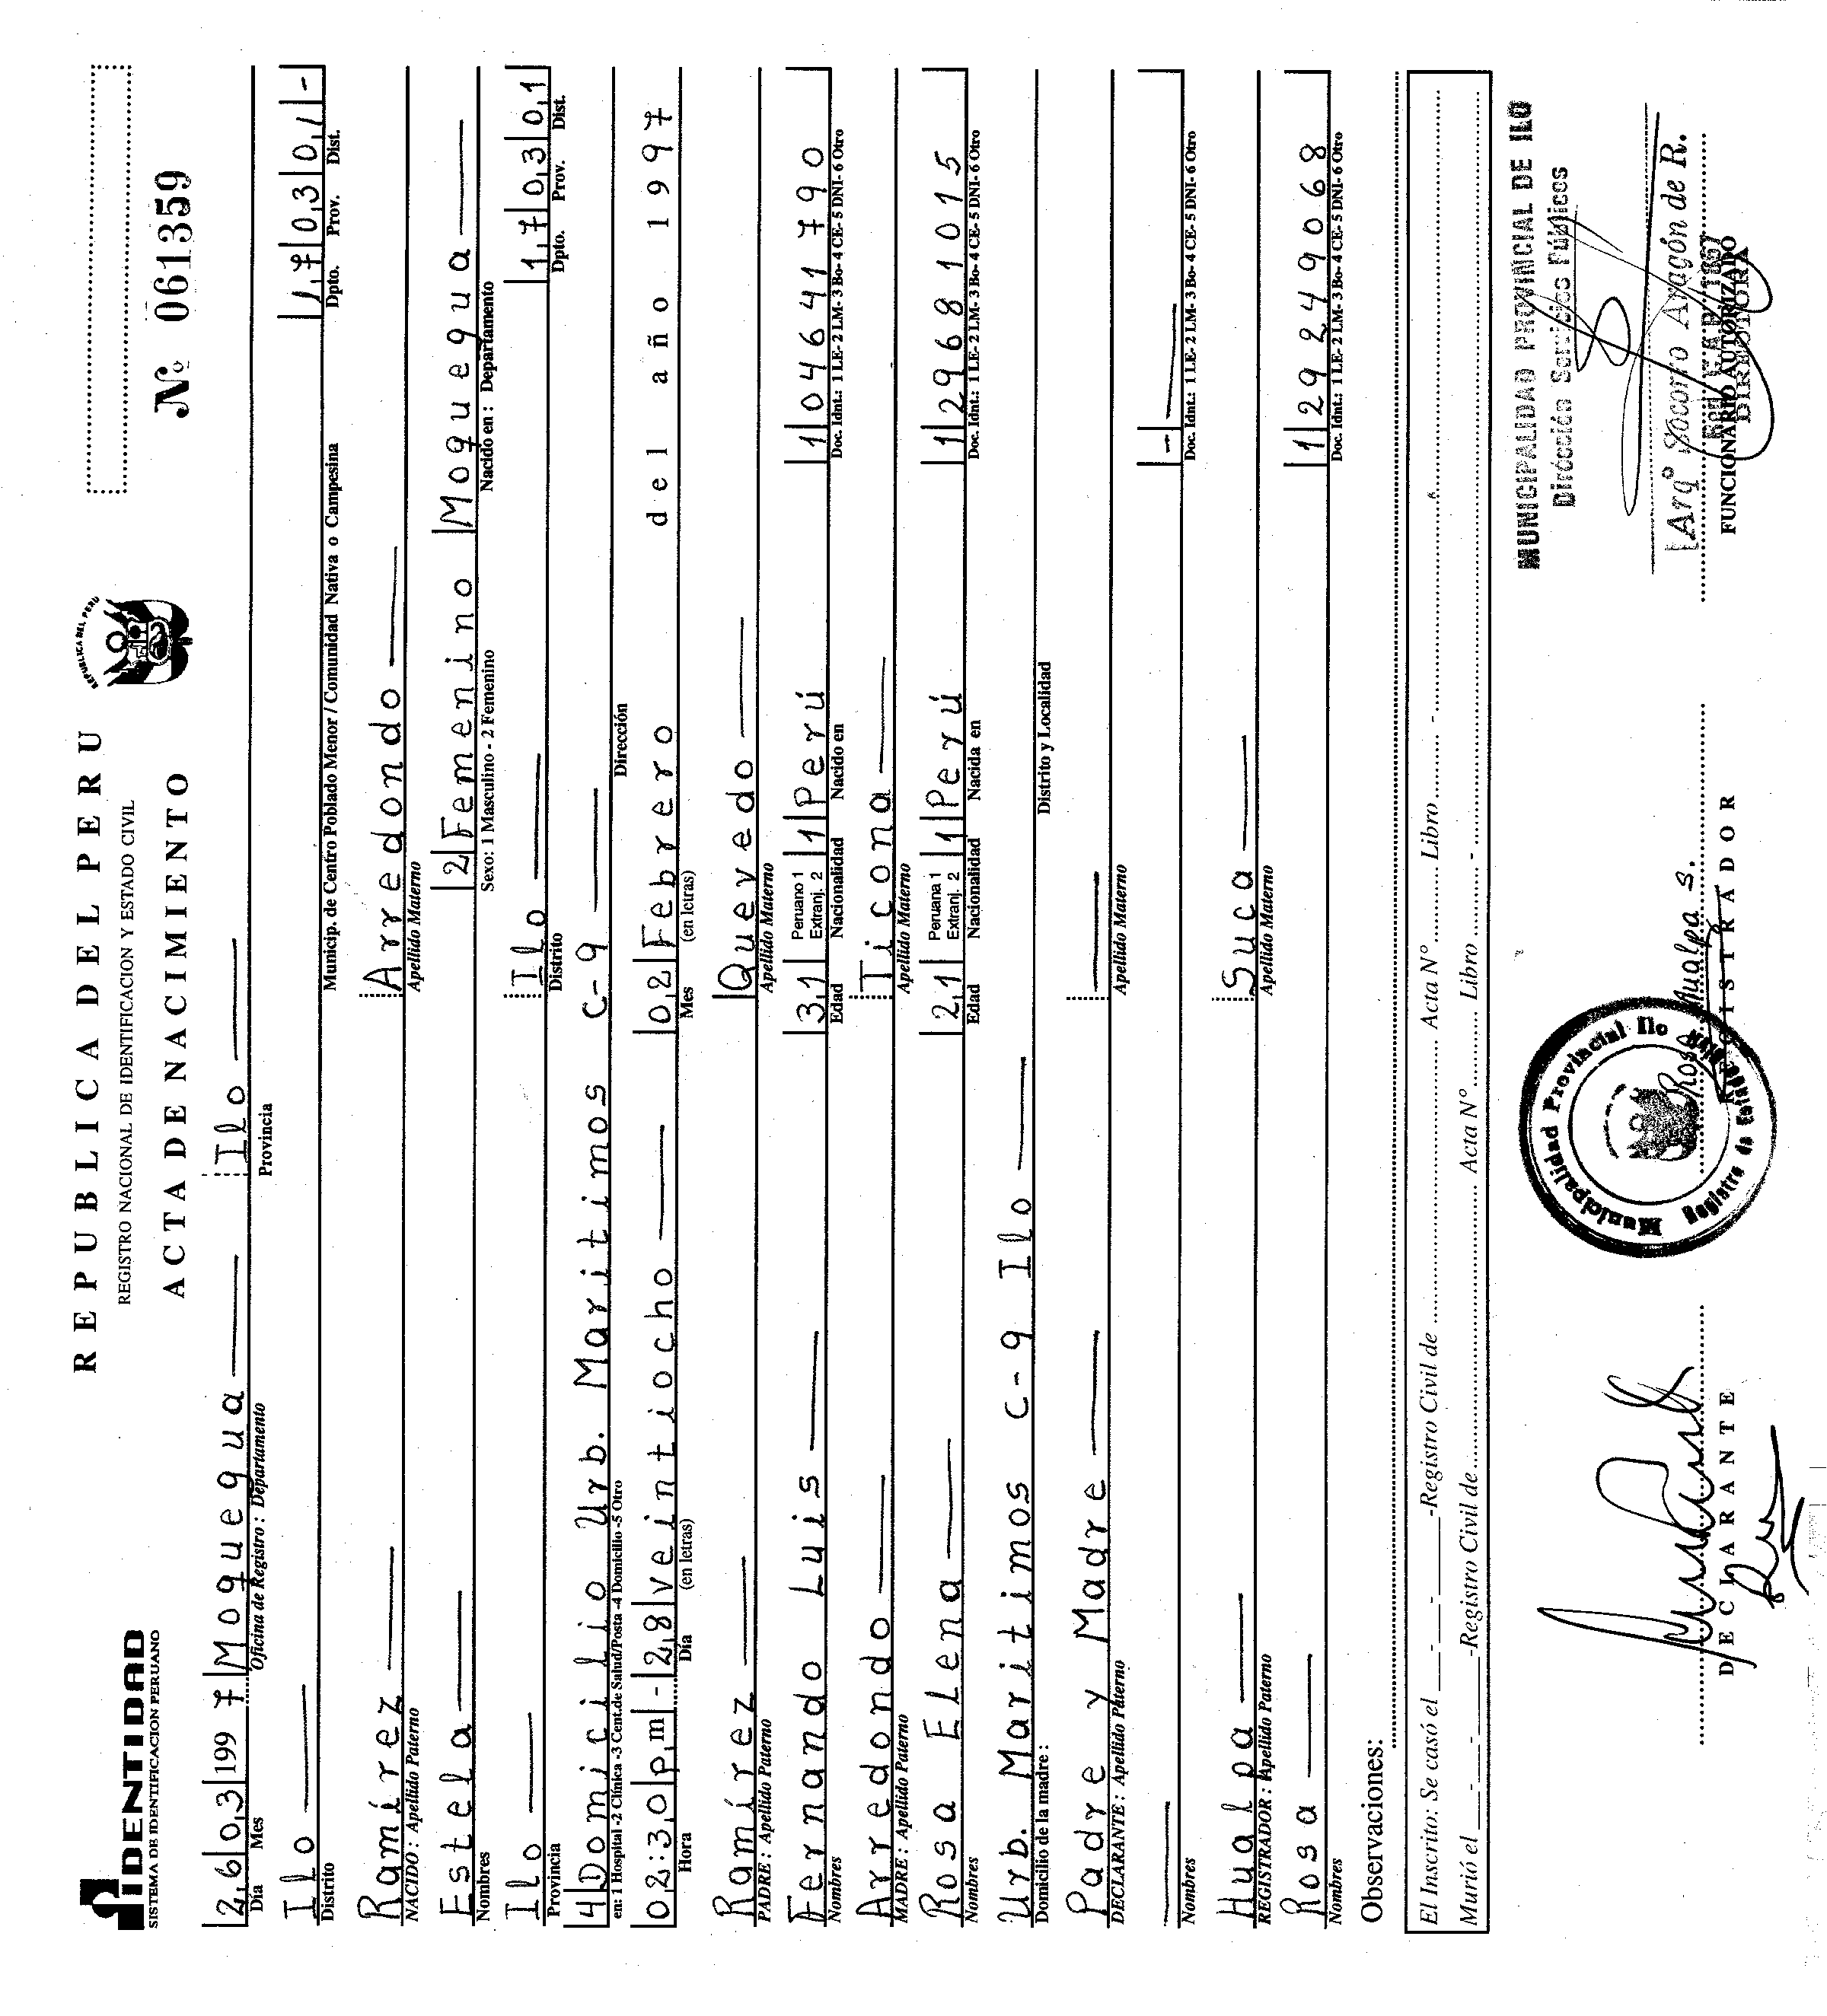 IDENTIDAD
SISTEMA DE IDENTIFICACION PERUANO
REPUBLICA DEL PERU
REPUBLICA DEL PERU
REGISTRO NACIONAL DE IDENTIFICACION Y ESTADO CIVIL
ACTA DE NACIMIENTO
Nº 061359
26 03 1997 Moquegua Ilo
Día Mes Oficina de Registro : Departamento Provincia
Ilo 17 03 01 -
Distrito Municip. de Centro Poblado Menor / Comunidad Nativa o Campesina Dpto. Prov. Dist.
Ramírez Arredondo
NACIDO : Apellido Paterno Apellido Materno
Estela 2 Femenino Moquegua
Nombres Sexo: 1 Masculino - 2 Femenino Nacido en : Departamento
Ilo Ilo 17 03 01
Provincia Distrito Dpto. Prov. Dist.
4 Domicilio Urb. Maritimos C-9
en: 1 Hospital -2 Clínica -3 Cent.de Salud/Posta -4 Domicilio -5 Otro Dirección
02:30 pm - 28 veintiocho 02 Febrero del año 1997
Hora Día (en letras) Mes (en letras)
Ramírez Quevedo
PADRE : Apellido Paterno Apellido Materno
Fernando Luis 31 Peruano 1 Extranj. 2 1 Perú 1 04641790
Nombres Edad Nacionalidad Nacido en Doc. Idnt.: 1 LE- 2 LM- 3 Bo- 4 CE- 5 DNI- 6 Otro
Arredondo Ticona
MADRE : Apellido Paterno Apellido Materno
Rosa Elena 21 Peruana 1 Extranj. 2 1 Perú 1 29681015
Nombres Edad Nacionalidad Nacida en Doc. Idnt.: 1 LE- 2 LM- 3 Bo- 4 CE- 5 DNI- 6 Otro
Urb. Maritimos C-9 Ilo
Domicilio de la madre : Distrito y Localidad
Padre y Madre
DECLARANTE : Apellido Paterno Apellido Materno
-
Nombres Doc. Idnt.: 1 LE- 2 LM- 3 Bo- 4 CE- 5 DNI- 6 Otro
Hualpa Suca
REGISTRADOR : Apellido Paterno Apellido Materno
Rosa 1 29249068
Nombres Doc. Idnt.: 1 LE- 2 LM- 3 Bo- 4 CE- 5 DNI- 6 Otro
Observaciones:
El Inscrito: Se casó el ___-___-___-Registro Civil de ........ Acta Nº ........ Libro ........ -
Murió el ___-___-___-Registro Civil de ........ Acta Nº ........ Libro ........ -
MUNICIPALIDAD PROVINCIAL DE ILO
Dirección Servicios Públicos
Municipalidad Provincial Ilo
Registro de Estado
Rosa Hualpa S.
Arqº Socorro Aragón de R.
DIRECTORA
DECLARANTE
REGISTRADOR
FUNCIONARIO AUTORIZADO